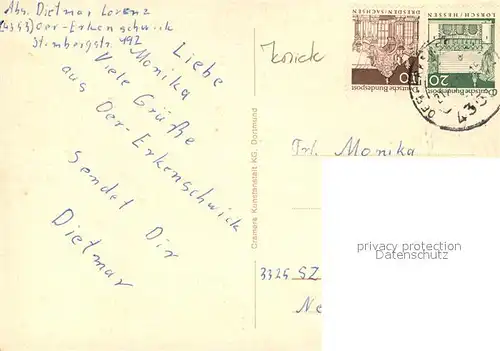 Abs. Dietmar Lorenz
(4353) Oer-Erkenschwick
Stimbergstr. 492
Liebe
Monika
Viele Grüße
aus Oer-Erkenschwick
sendet Dir
Dietmar
Cramers Kunstanstalt KG, Dortmund
DRESDEN/SACHSEN
10
Deutsche Bundespost
LORSCH/HESSEN
20
Deutsche Bundespost
4353
Frl. Monika
privacy protection
Datenschutz
3325 SZ
Ne